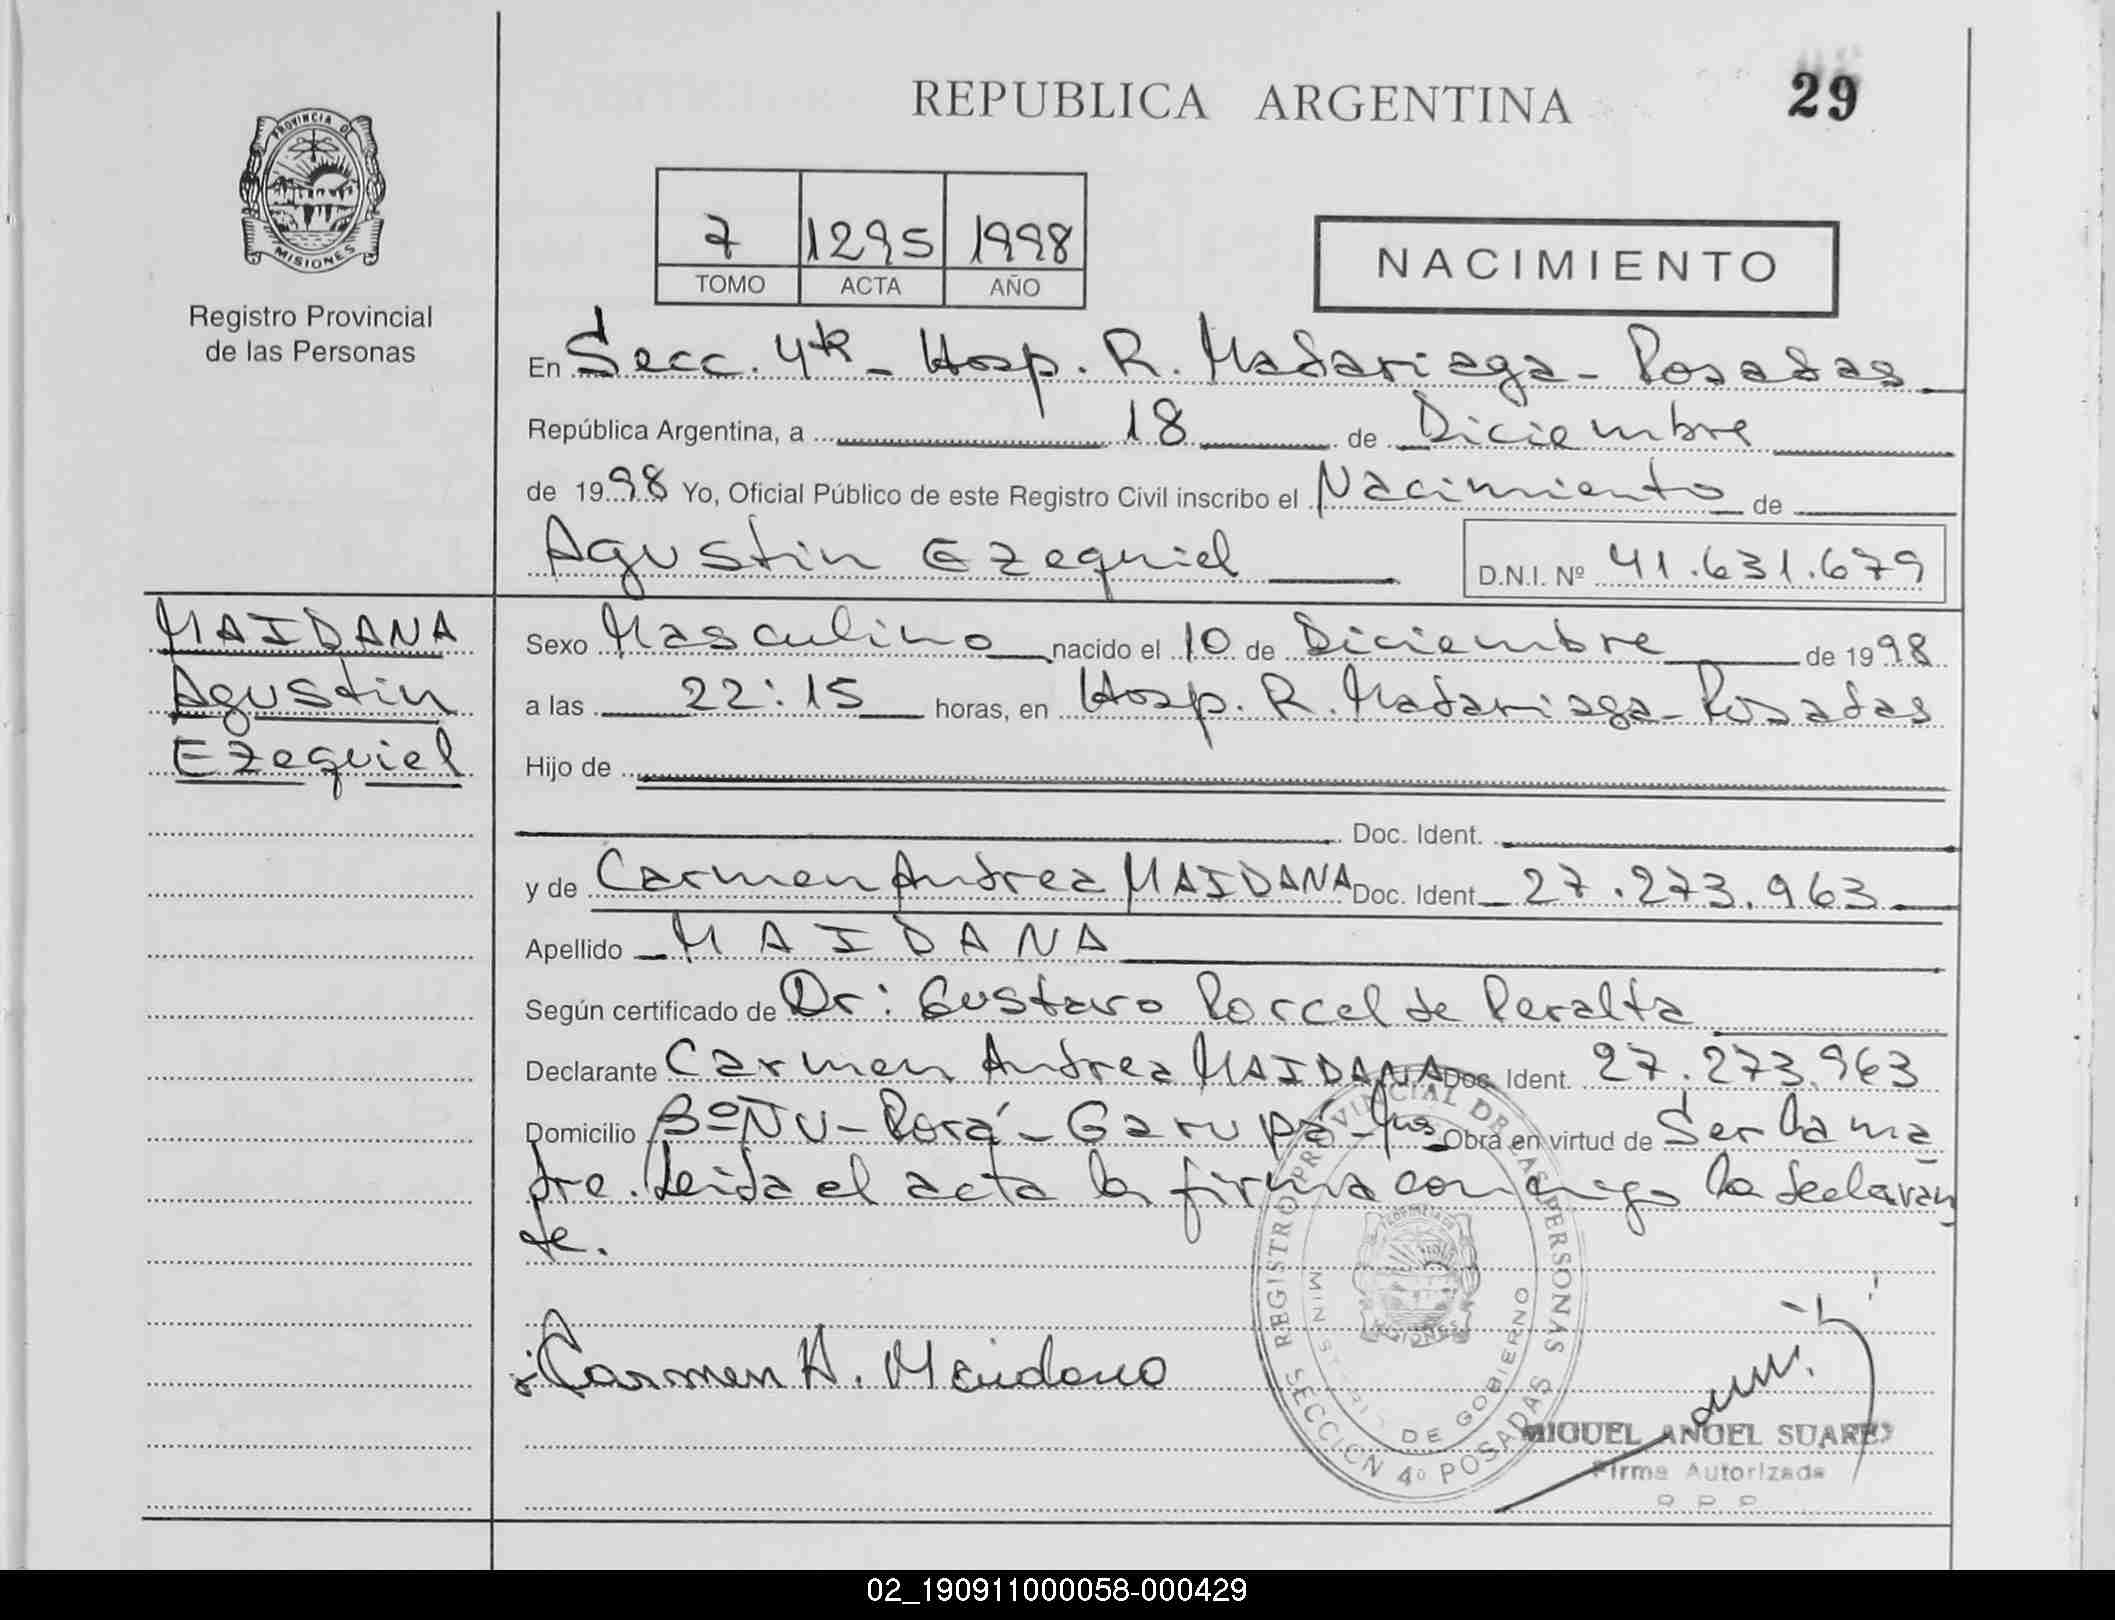 REPUBLICA ARGENTINA
29
PROVINCIA DE
MISIONES
Registro Provincial
de las Personas
7 1295 1998
TOMO ACTA AÑO
NACIMIENTO
En Secc. 4ta - Hosp. R. Madariaga - Posadas
República Argentina, a 18 de Diciembre
de 1998 Yo, Oficial Público de este Registro Civil inscribo el Nacimiento de
Agustin Ezequiel D.N.I. Nº 41.631.679
MAIDANA
Agustin
Ezequiel
Sexo Masculino nacido el 10 de Diciembre de 1998
a las 22:15 horas, en Hosp. R. Madariaga - Posadas
Hijo de
Doc. Ident.
y de Carmen Andrea MAIDANA Doc. Ident. 27.273.963
Apellido MAIDANA
Según certificado de Dr: Gustavo Porcel de Peralta
Declarante Carmen Andrea MAIDANA Doc. Ident. 27.273.963
Domicilio Bº ÑU - Porá - Garupá - Mns Obra en virtud de Ser la ma
dre. Leida el acta la firma conmigo la declaran
te.
Carmen A. Maidana
REGISTRO PROVINCIAL DE LAS PERSONAS
MINISTERIO DE GOBIERNO
SECCION 4º POSADAS
MISIONES
MIGUEL ANGEL SUAREZ
Firma Autorizada
R P P
02_190911000058-000429